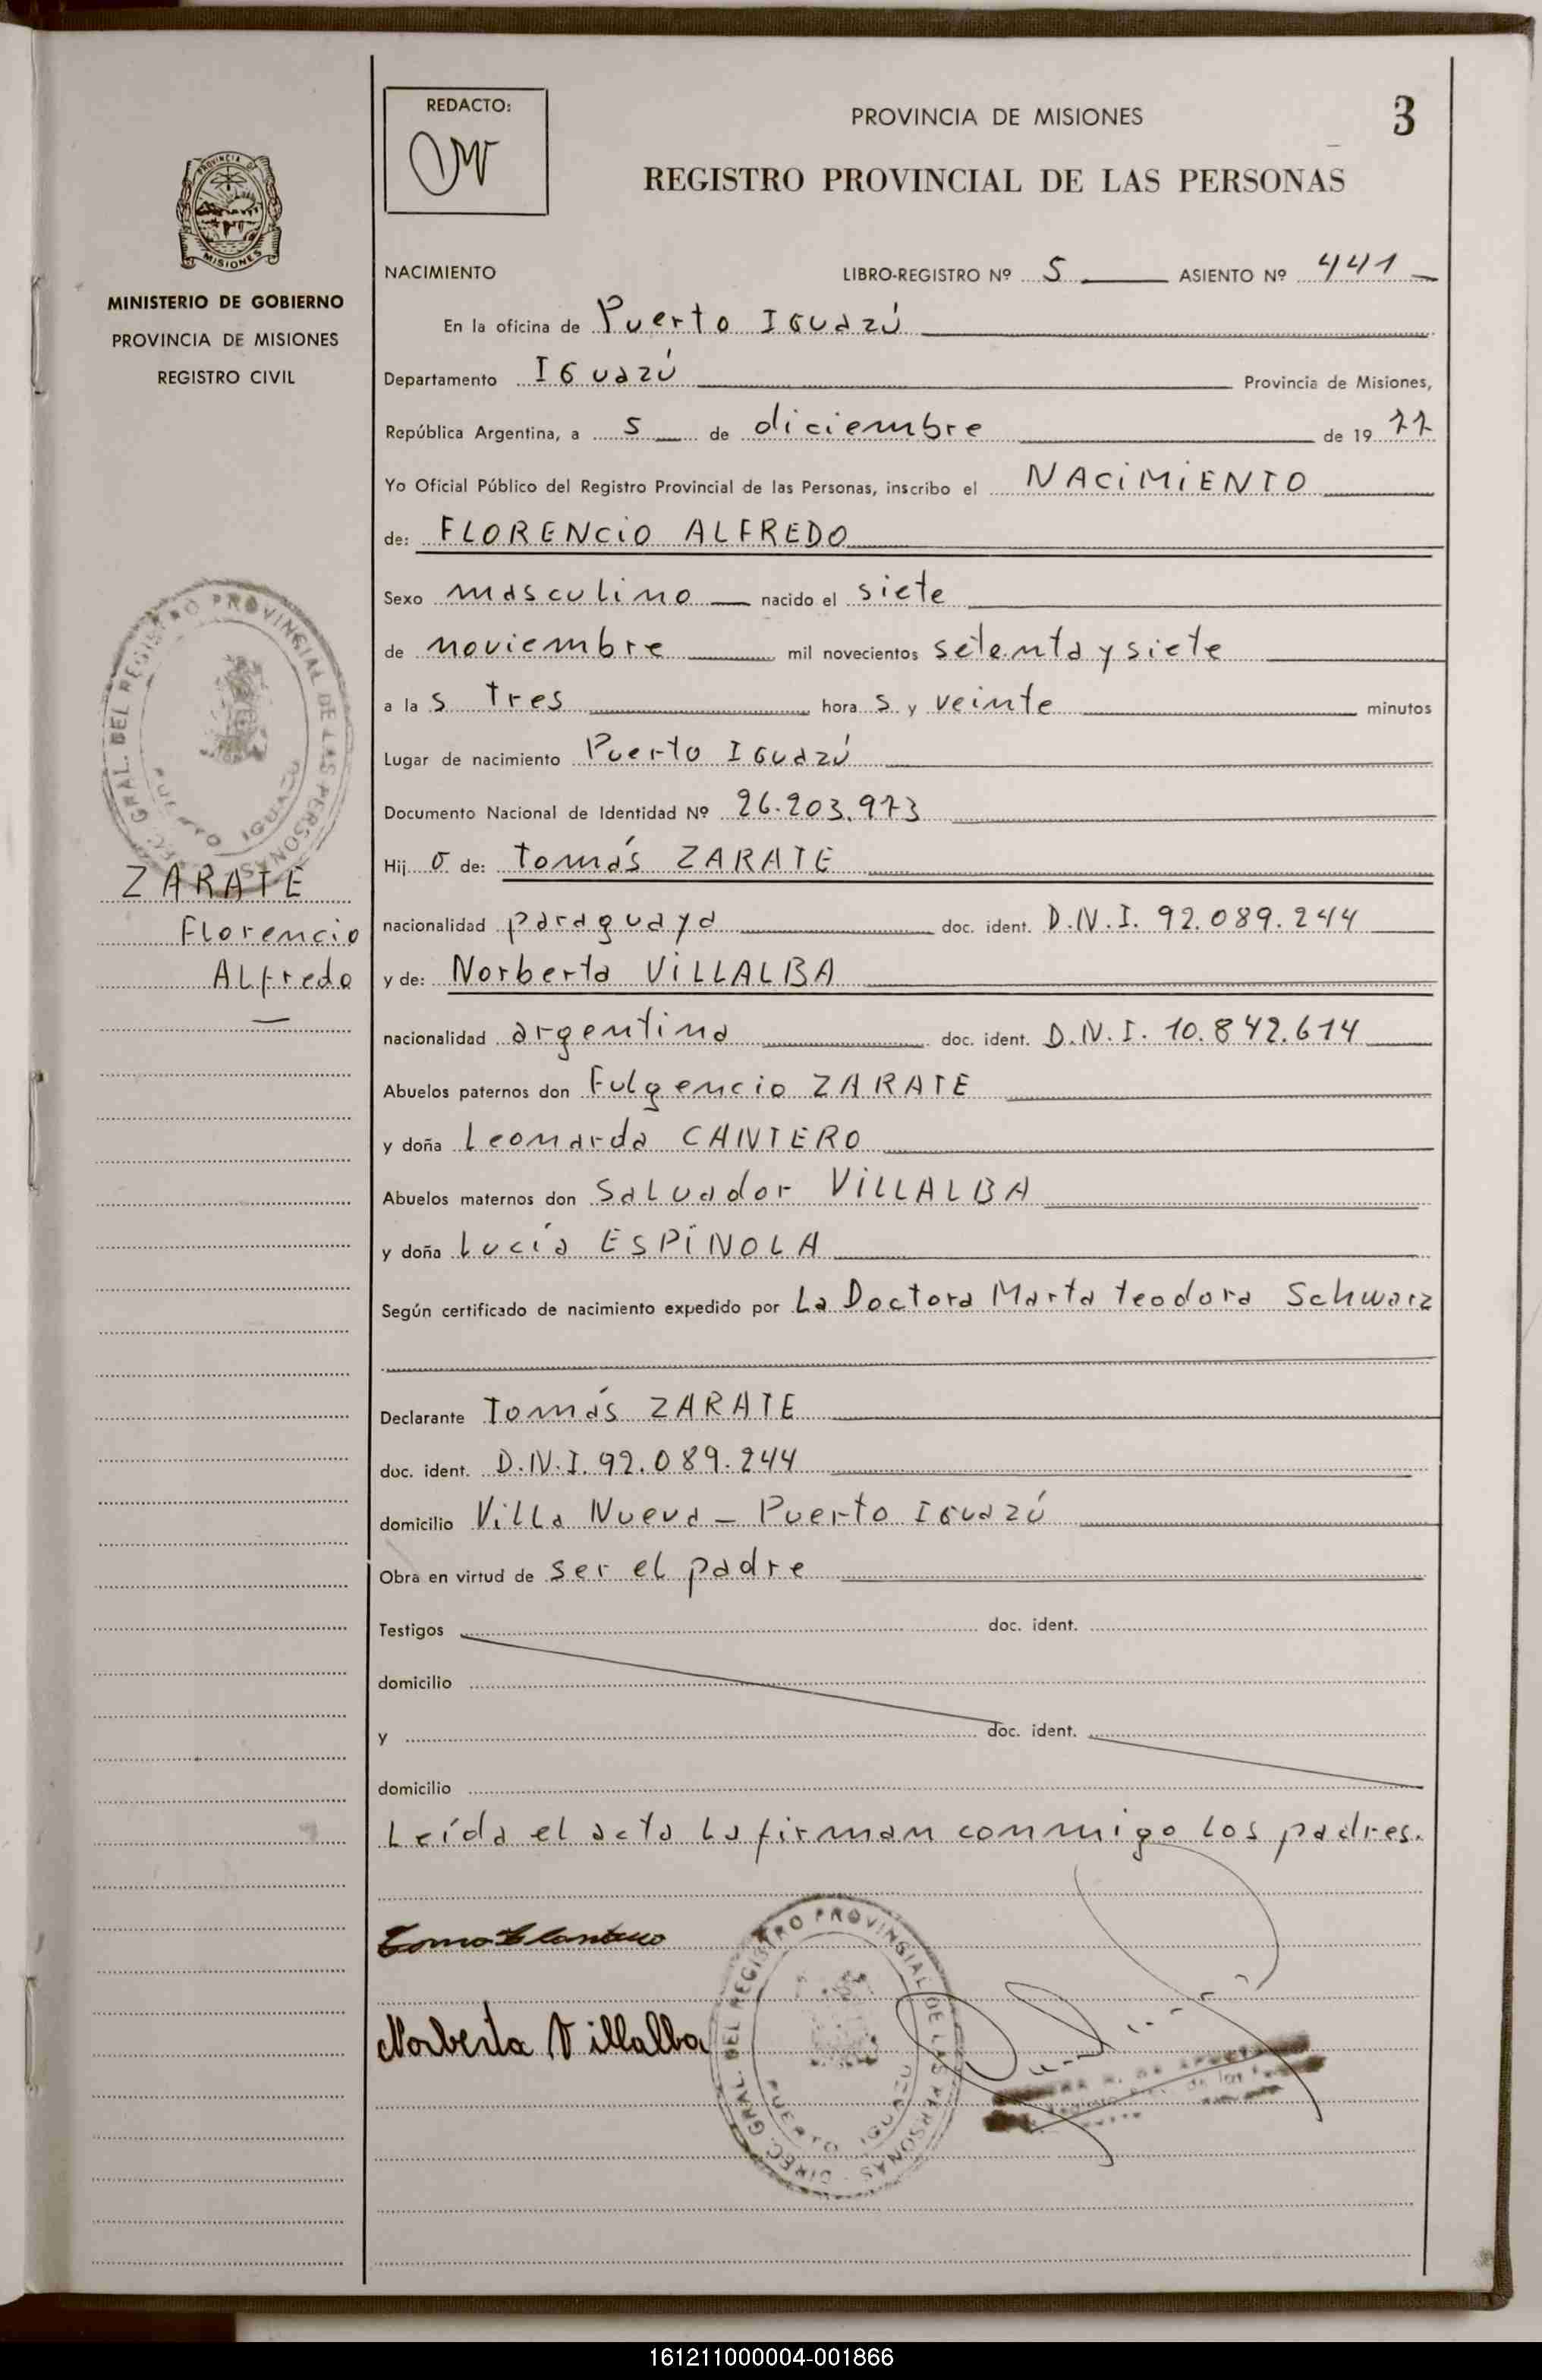 REDACTO:
PROVINCIA DE MISIONES
3
REGISTRO PROVINCIAL DE LAS PERSONAS
MISIONES
MINISTERIO DE GOBIERNO
PROVINCIA DE MISIONES
REGISTRO CIVIL
NACIMIENTO LIBRO-REGISTRO Nº 5 ASIENTO Nº 441
En la oficina de Puerto IGuazú
Departamento IGuazú Provincia de Misiones,
República Argentina, a 5 de diciembre de 1977
Yo Oficial Público del Registro Provincial de las Personas, inscribo el NACiMiENTO
de: FLORENCiO ALFREDO
Sexo masculino nacido el siete
de noviembre mil novecientos setenta y siete
a las tres horas y veinte minutos
Lugar de nacimiento Puerto IGuazú
Documento Nacional de Identidad Nº 26.203.973
Hijo de: Tomás ZARATE
ZARATE
Florencio
ALfredo
nacionalidad paraguaya doc. ident. D.N.I. 92.089.244
y de: Norberta ViLLALBA
nacionalidad argentina doc. ident. D.N.I. 10.842.614
Abuelos paternos don Fulgencio ZARATE
y doña Leonarda CANTERO
Abuelos maternos don Salvador ViLLALBA
y doña Lucía ESPÍNOLA
Según certificado de nacimiento expedido por La Doctora Marta Teodora Schwarz
Declarante Tomás ZARATE
doc. ident. D.N.I. 92.089.244
domicilio Villa Nueva - Puerto IGuazú
Obra en virtud de ser el padre
Testigos doc. ident.
domicilio
y doc. ident.
domicilio
Leída el acta la firman conmigo los padres.
Norberta Villalba
DIREC. GRAL. DEL REGISTRO PROVINSIAL DE LAS PERSONAS
PUERTO IGUAZU
161211000004-001866